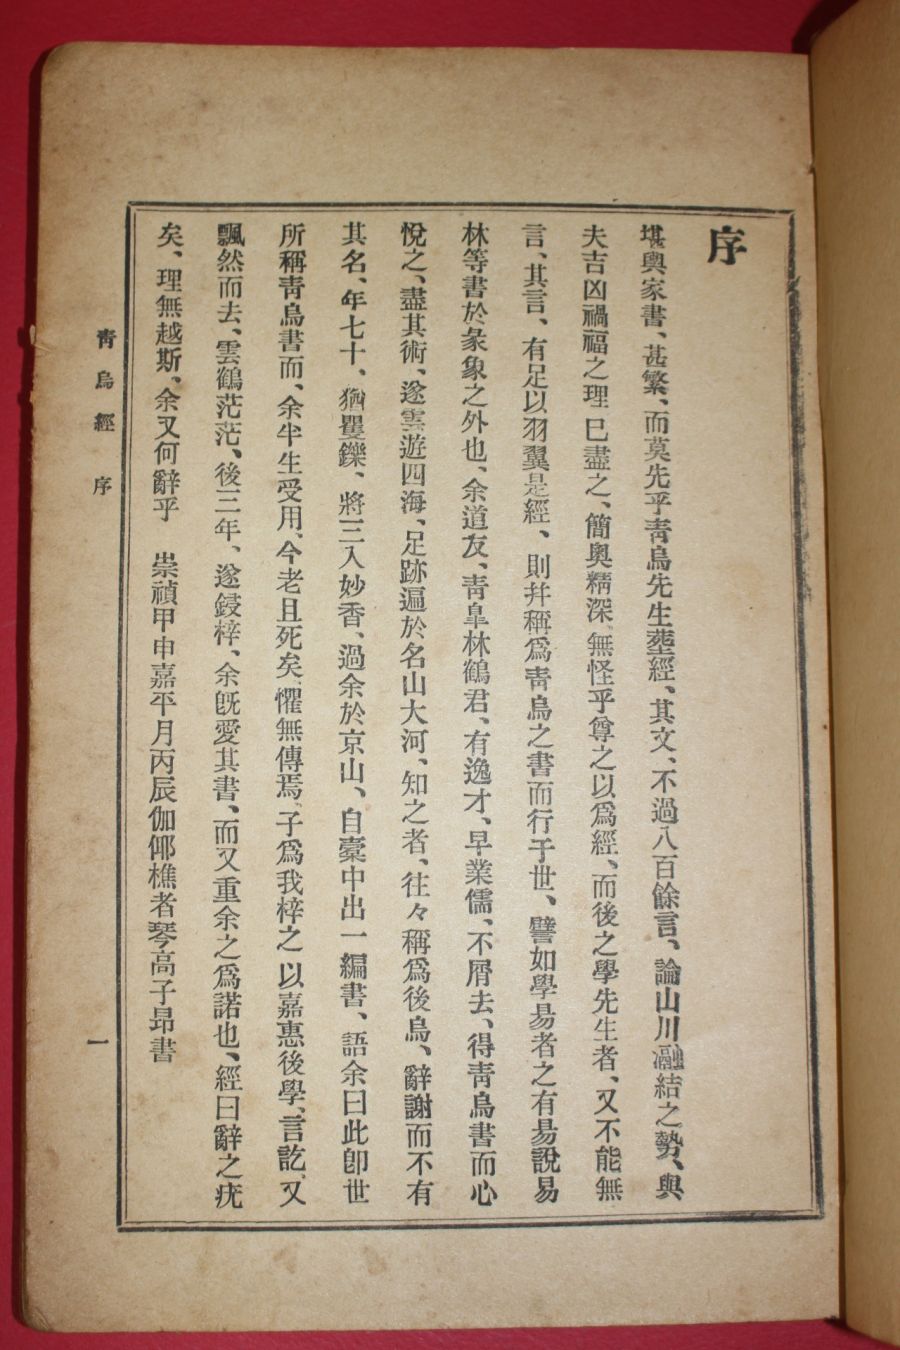 序
堪輿家書、甚繁、而莫先乎靑烏先生塟經、其文、不過八百餘言、論山川瀜結之勢、與
夫吉凶禍福之理巳盡之、簡奧精深、無怪乎尊之以爲經、而後之學先生者、又不能無
言、其言、有足以羽翼是經、則幷稱爲靑烏之書而行于世、譬如學易者之有易說易
林等書於彖象之外也、余道友、靑臯林鶴君、有逸才、早業儒、不屑去、得靑烏書而心
悅之、盡其術、遂雲遊四海、足跡遍於名山大河、知之者、往々稱爲後烏、辭謝而不有
其名、年七十、猶矍鑠、將三入妙香、過余於京山、自槖中出一編書、語余曰此卽世
所稱靑烏書而、余半生受用、今老且死矣、懼無傳焉、子爲我梓之以嘉惠後學、言訖、又
飄然而去、雲鶴茫茫、後三年、遂鋟梓、余旣愛其書、而又重余之爲諾也、經曰辭之疣
矣、理無越斯、余又何辭乎　崇禎甲申嘉平月丙辰伽倻樵者琴高子昻書
靑烏經　序
一